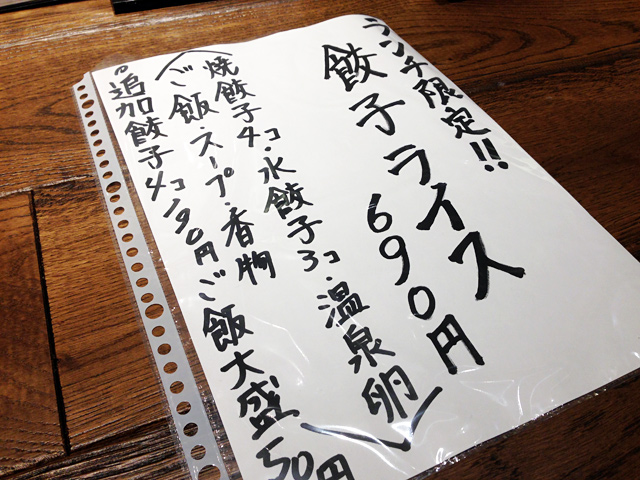 ランチ限定!!
餃子ライス
690円
焼餃子4コ・水餃子3コ・温泉卵
ご飯・スープ・香物
・追加餃子4コ190円ご飯大盛50円